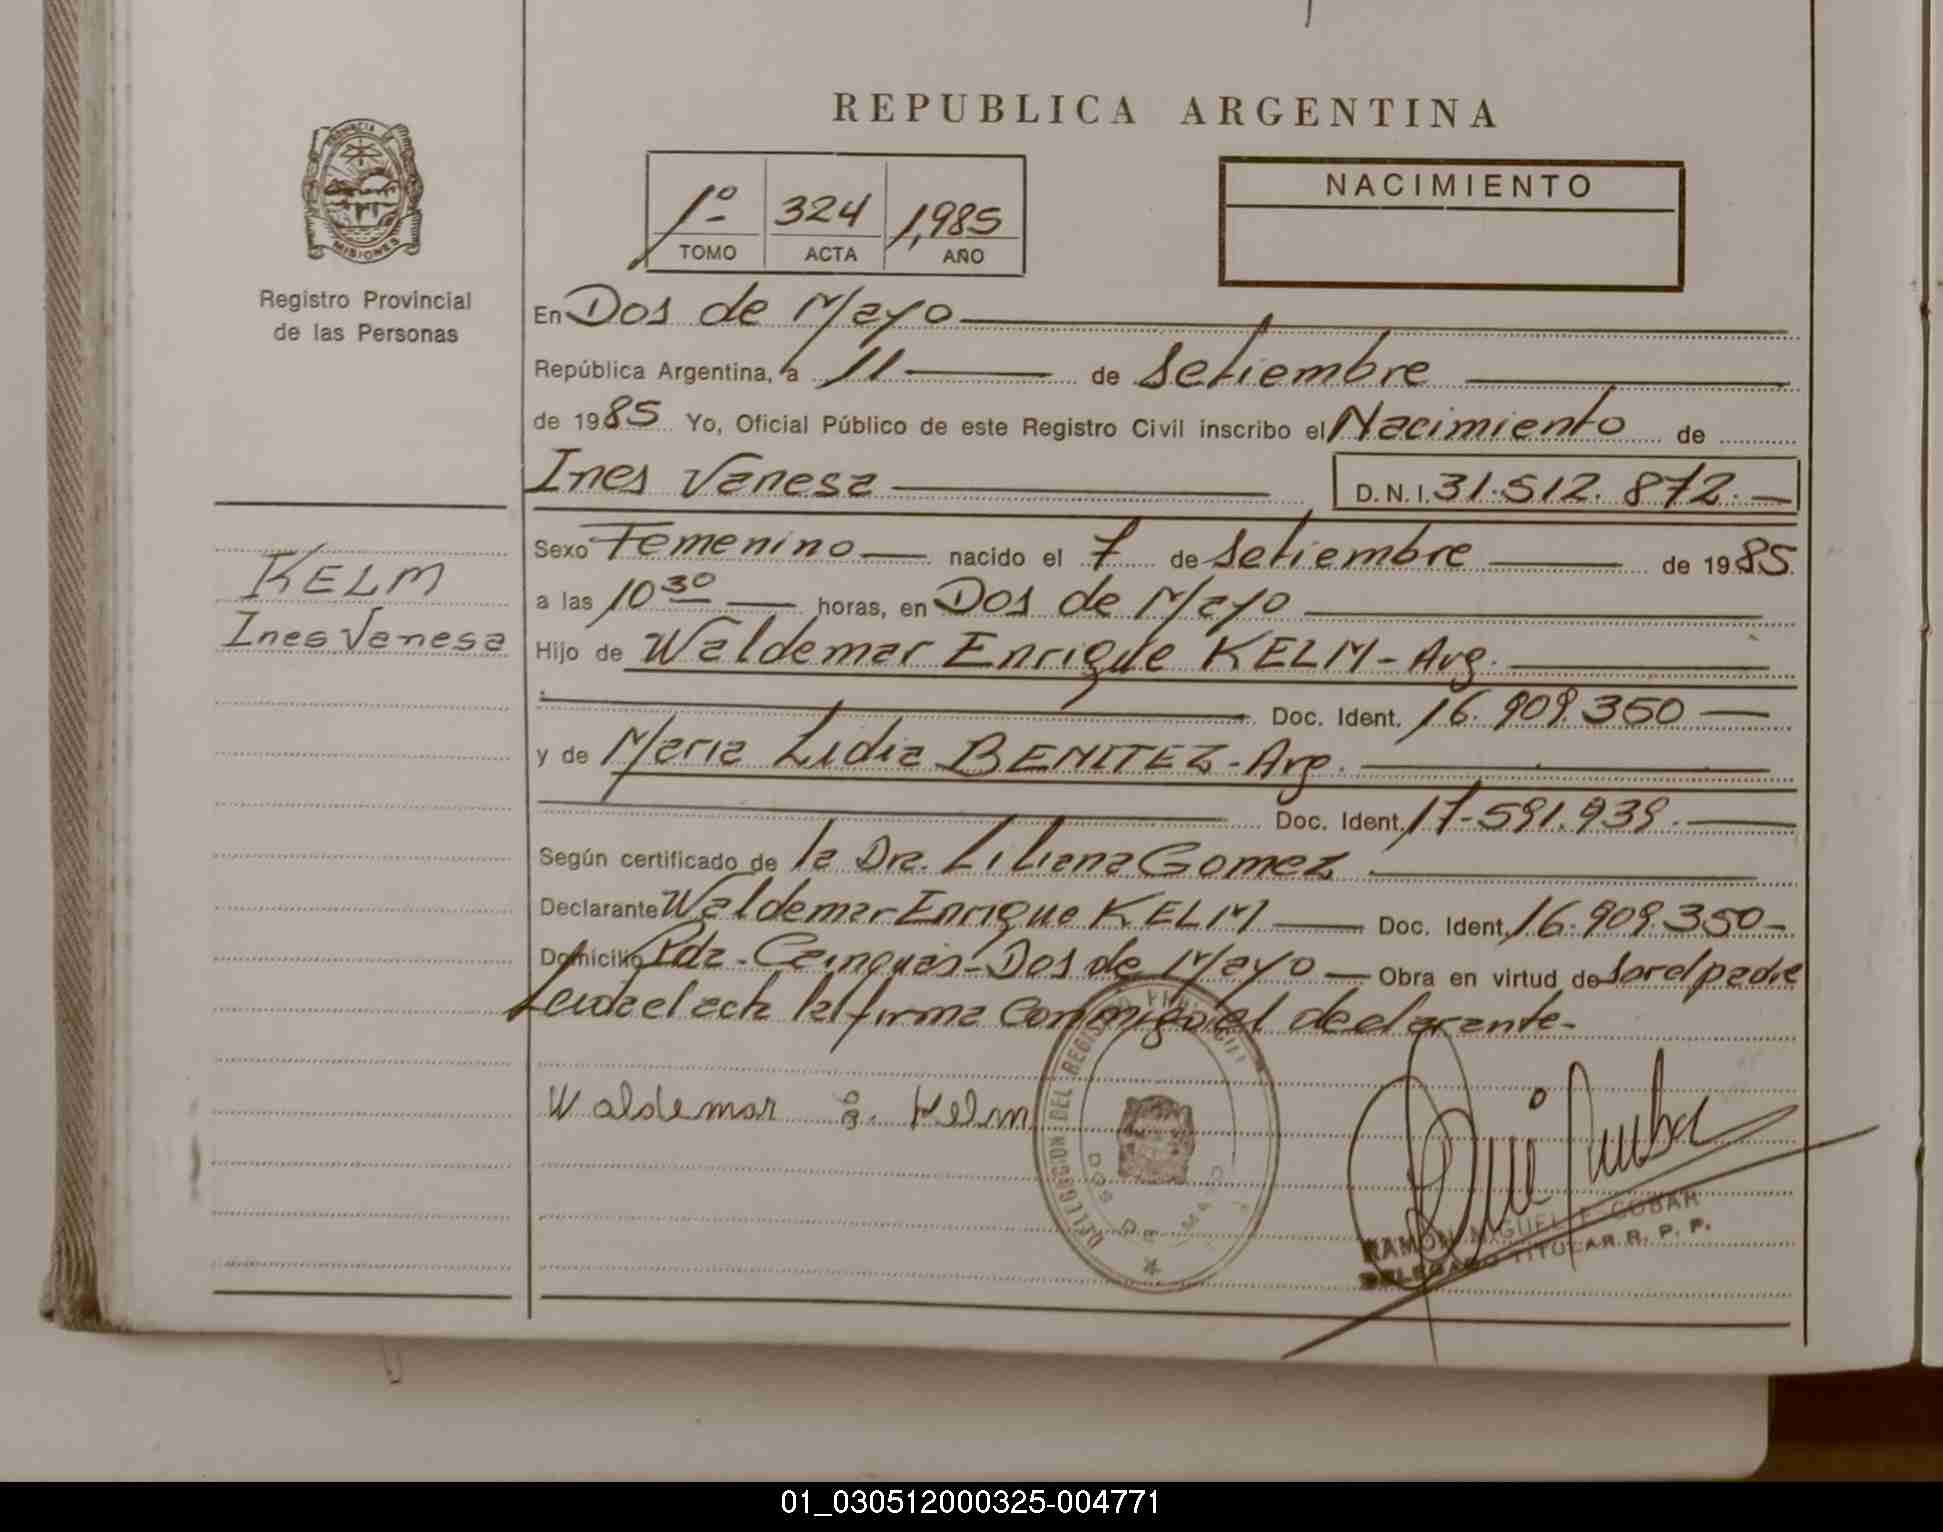 REPUBLICA ARGENTINA
PROVINCIA DE
MISIONES
Registro Provincial
de las Personas
1º 324 1,985
TOMO ACTA AÑO
NACIMIENTO
En Dos de Mayo
República Argentina, a 11 de Setiembre
de 1985 Yo, Oficial Público de este Registro Civil inscribo el Nacimiento de
Ines Vanesa D. N. I. 31.512.872.
KELM
Ines Vanesa
Sexo Femenino nacido el 7 de Setiembre de 1985
a las 10 30 horas, en Dos de Mayo
Hijo de Waldemar Enrique KELM - Arg.
Doc. Ident. 16.909.350
y de Maria Lidia BENITEZ - Arg.
Doc. Ident. 17.591.939.
Según certificado de la Dra. Liliana Gomez
Declarante Waldemar Enrique KELM Doc. Ident. 16.909.350
Domicilio Pda. - Dos de Mayo Obra en virtud de ser el padre
Leida el acta la firma conmigo el declarante.
Waldemar E. Kelm
DELEGACION DEL REGISTRO PROVINCIAL
DOS DE MAYO
RAMON MIGUEL ESCOBAR
DELEGADO TITULAR R. P. P.
01_030512000325-004771